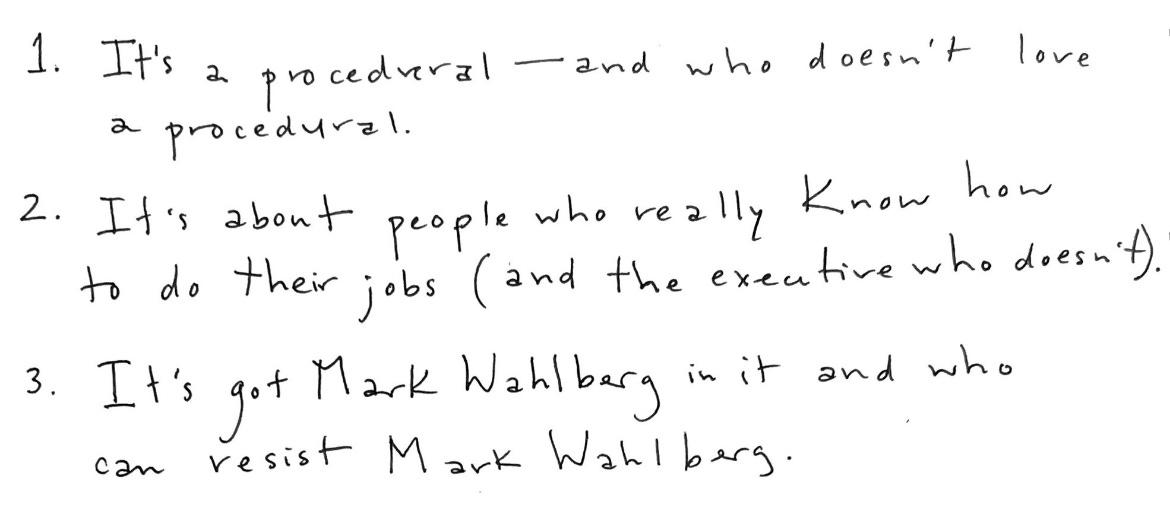 1. It's a procedural — and who doesn't love
a procedural.
2. It's about people who really know how
to do their jobs (and the executive who doesn't).
3. It's got Mark Wahlberg in it and who
can resist Mark Wahlberg.